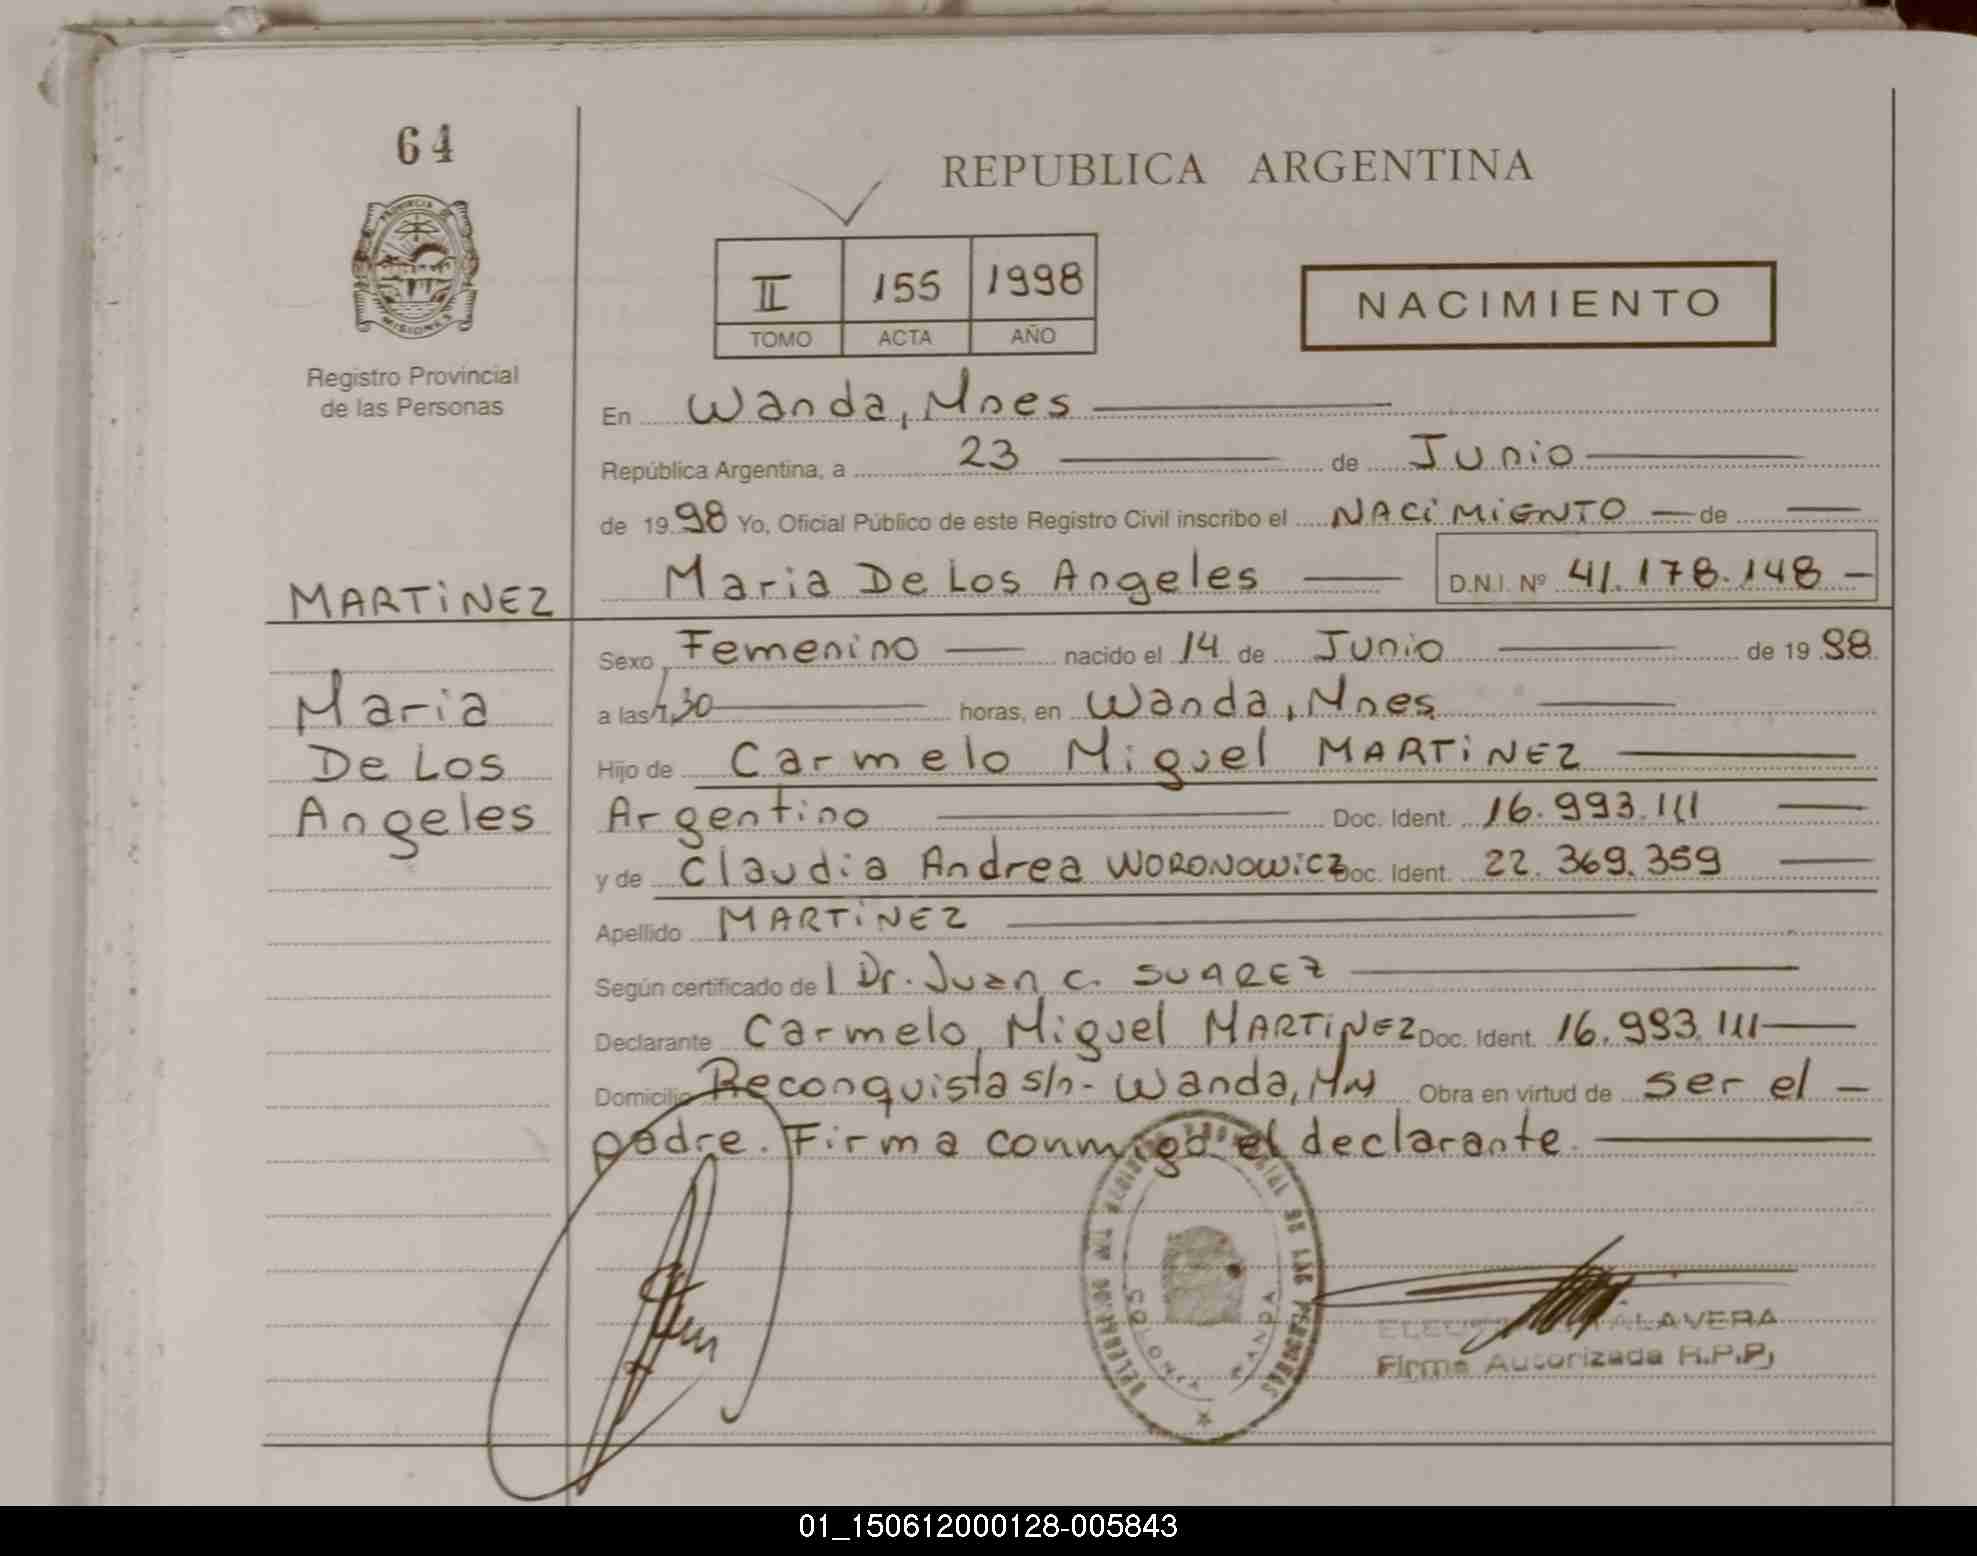 64
PROVINCIA DE
MISIONES
Registro Provincial
de las Personas
REPUBLICA ARGENTINA
II 155 1998
TOMO ACTA AÑO
NACIMIENTO
En Wanda, Mnes
República Argentina, a 23 de Junio
de 1998 Yo, Oficial Público de este Registro Civil inscribo el NACIMIENTO de
MARTINEZ Maria De Los Angeles D.N.I. Nº 41.178.148
Sexo Femenino nacido el 14 de Junio de 1998
Maria
a las horas, en Wanda, Mnes
De Los
Hijo de Carmelo Miguel MARTINEZ
Angeles
Argentino Doc. Ident. 16.993.111
y de Claudia Andrea WORONOWICZ Doc. Ident. 22.369.359
Apellido MARTINEZ
Según certificado de l Dr. Juan C. SUAREZ
Declarante Carmelo Miguel MARTINEZ Doc. Ident. 16.993.111
Domicilio Reconquista s/n - Wanda, Obra en virtud de ser el
padre. Firma conmigo el declarante.
DE LAS PERSONAS
COLONIA WANDA
TALAVERA
Firma Autorizada R.P.P.
01_150612000128-005843